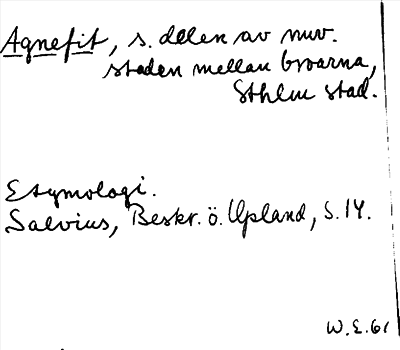 Agnefit, s. delen av nuv.
staden mellan broarna,
Sthlm stad.
Etymologi.
Salvius, Beskr. ö. Upland, S. 14.
W.E. 61